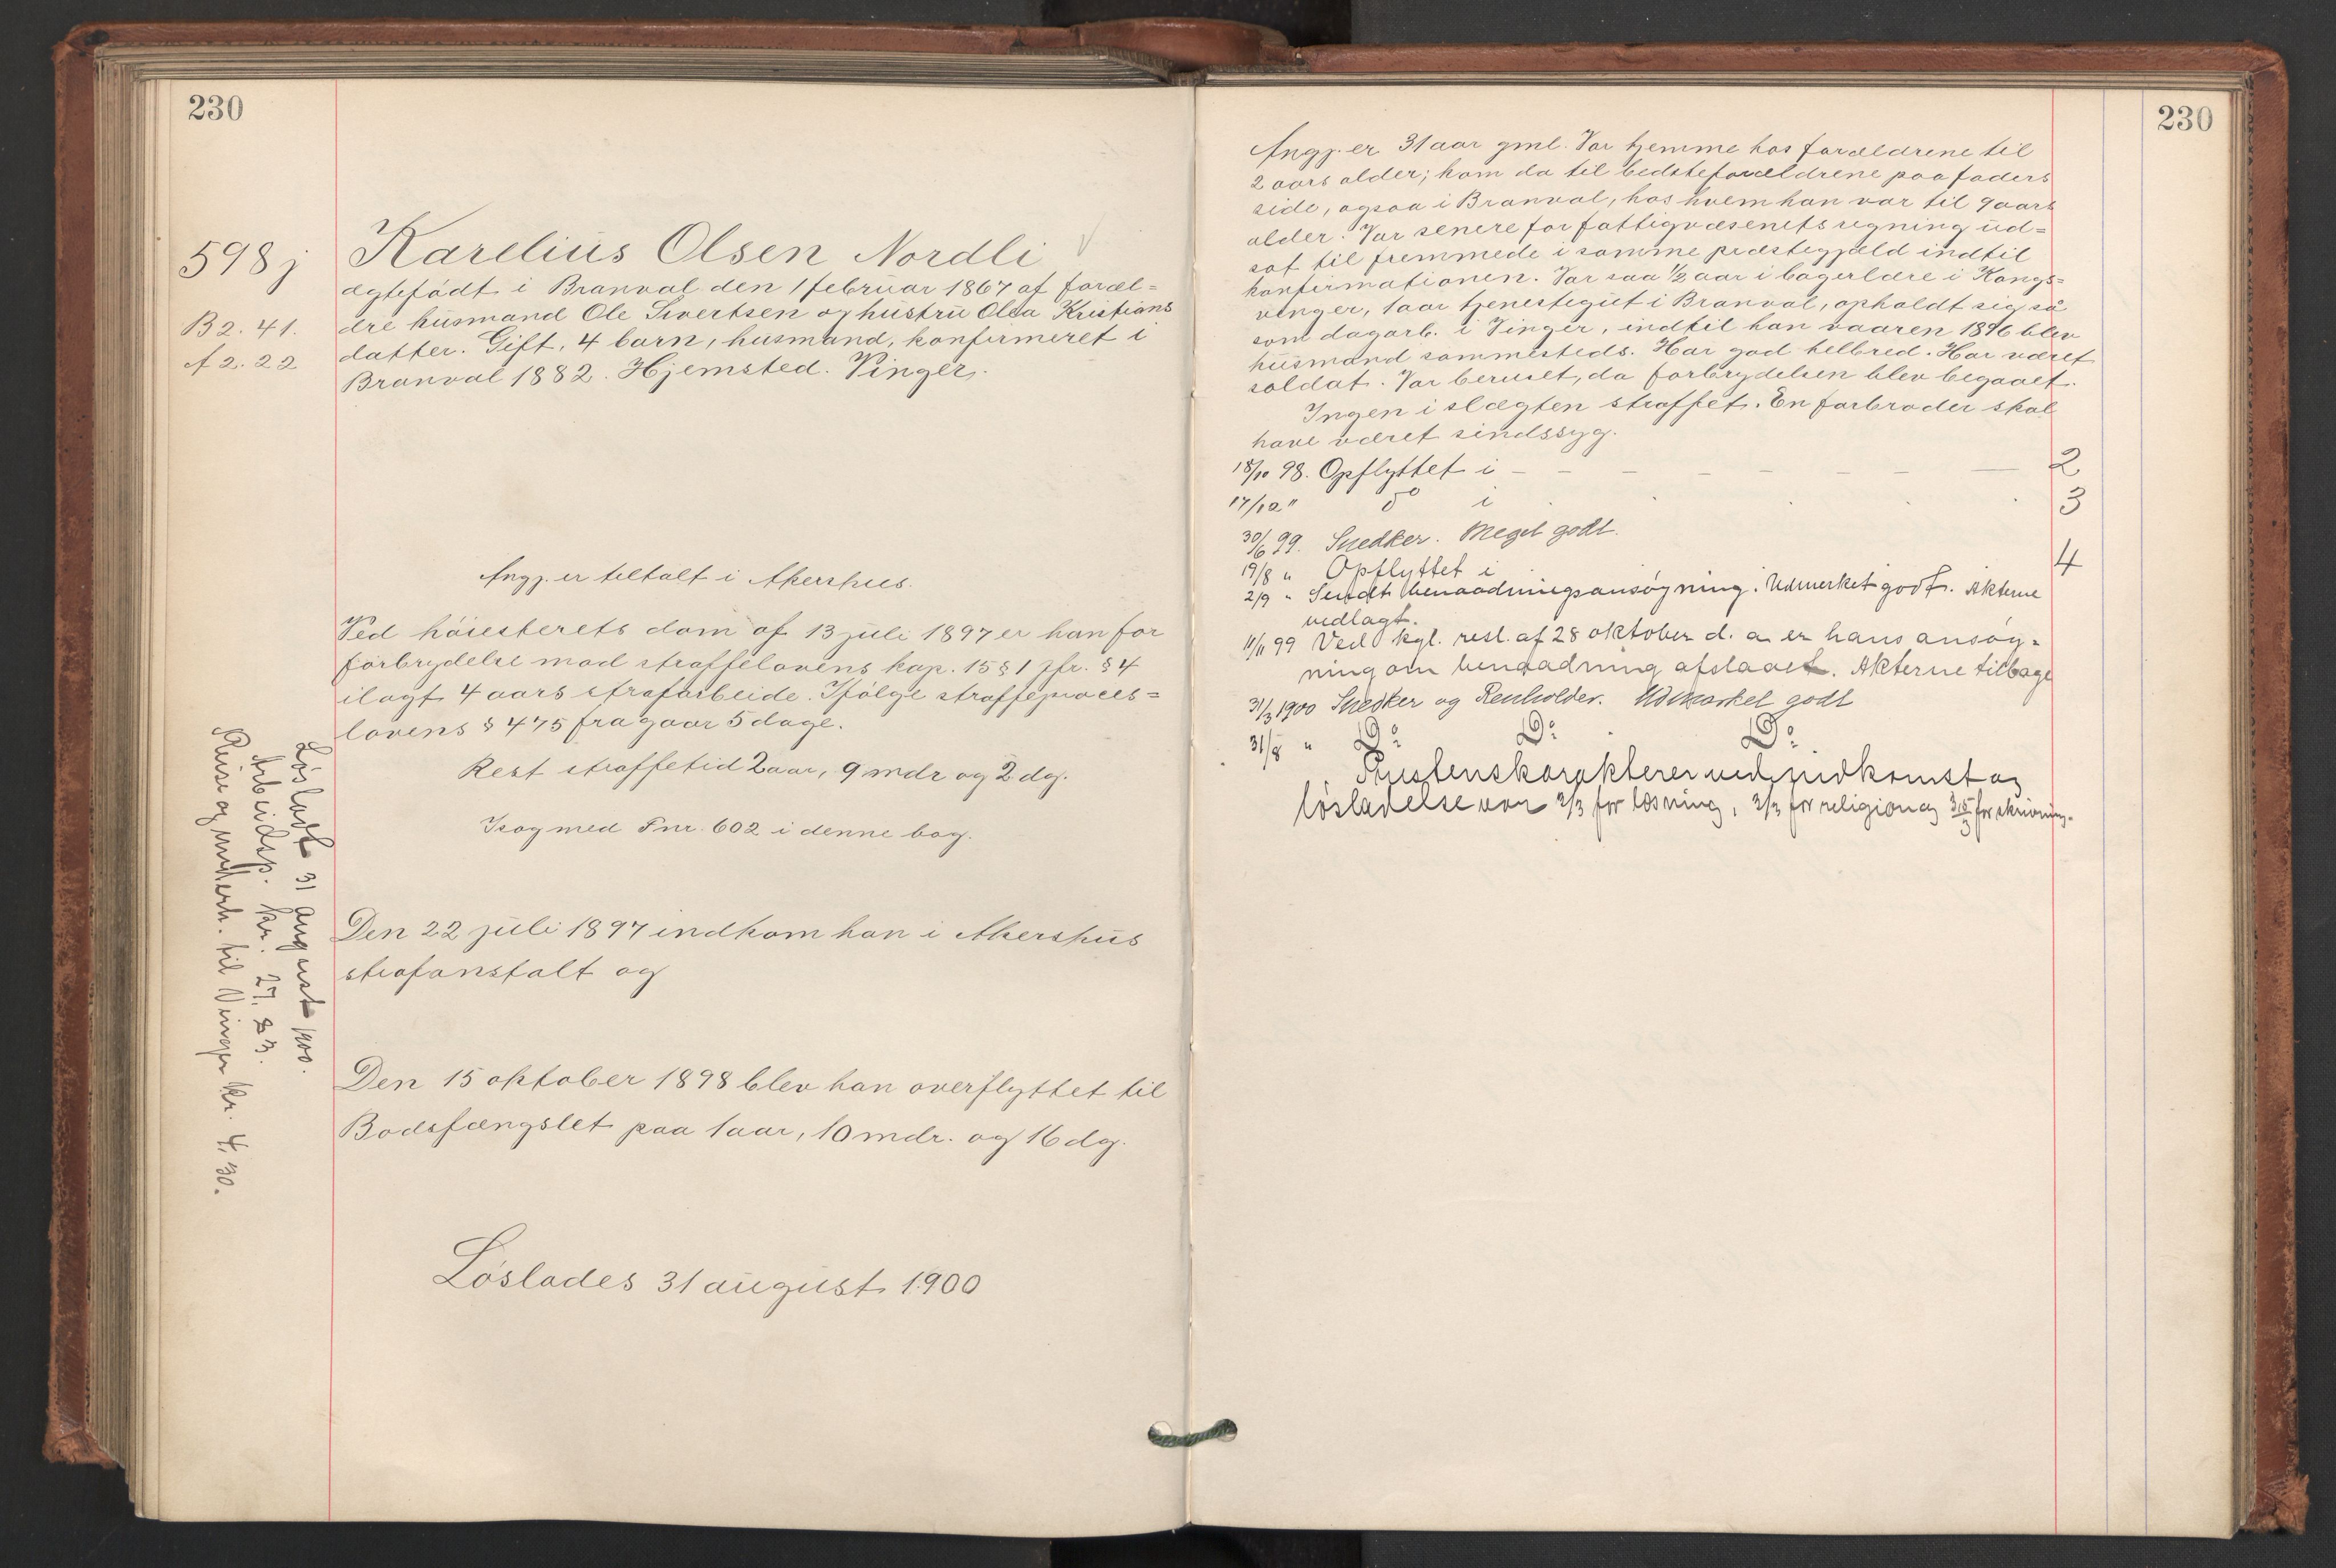 230
598 j
B 2. 41.
A 2. 22
Karelius Olsen Nordli
ægtefödt i Branval den 1 februar 1867 af foræl=
dre husmand Ole Sivertsen og hustru Olea Kristians
datter. Gift, 4 barn, husmand, konfirmeret i
Branval 1882. Hjemsted. Vinger.
Angj. er tiltalt i Akershus.
Ved höiesterets dom af 13 juli 1897 er han for
forbrydelse mod straffelovens kap. 15 § 1 jfr. § 4
ilagt 4 aars strafarbeide. Ifölge straffeproces=
lovens § 475 fragaar 5 dage.
Rest straffetid 2 aar, 9 mdr og 2 dg.
I sag med Fnr. 602 i denne bog.
Den 22 juli 1897 indkom han i Akershus
strafanstalt og
Den 15 oktober 1898 blev han overflyttet til
Bodsfængslet paa 1 aar, 10 mdr. og 16 dg.
Löslades 31 august 1900
Lösladt 31 august 1900.
Arbeidsp. kr. 27.83.
Reise og underh. til Vinger kr. 4,30.
230
Angj. er 31 aar gml. Var hjemme hos forældrene til
2 aars alder; kom da til bedsteforældrene paa faders
side, ogsaa i Branval, hos hvem han var til 9 aars
alder. Var senere for fattigvæsenets regning ud=
sat til fremmede i samme prestegjæld indtil
konfirmationen. Var saa 1/2 aar i bagerlære i Kongs=
vinger, 1 aar tjenestegut i Branval, opholdt sig så
som dagarb. i Vinger, indtil han vaaren 1896 blev
husmand sammesteds. Har god helbred. Har været
soldat. Var beruset, da forbrydelsen blev begaaet.
Ingen i slægten straffet. En farbroder skal
have været sindssyg.
18/10 98. Opflyttet i – – – – – – – 2
17/12 " do i . . . . 3
30/6 99. Snedker. Meget godt.
19/8 " Opflyttet i 4
2/9 " Sendt benaadningsansögning. Udmerket godt. Akterne
vedlagt.
11/11 99 Ved kgl. resl. af 28 oktober d. a. er hans ansög-
ning om benaadning afslaaet. Akterne tilbage
31/3 1900 Snedker og Renholder. Udmærket godt
31/8 " Do Do Do
Prestens karakterer ved indkomst og
löslatelse var 2/3 for læsning, 2/3 for religion og for skrivning.